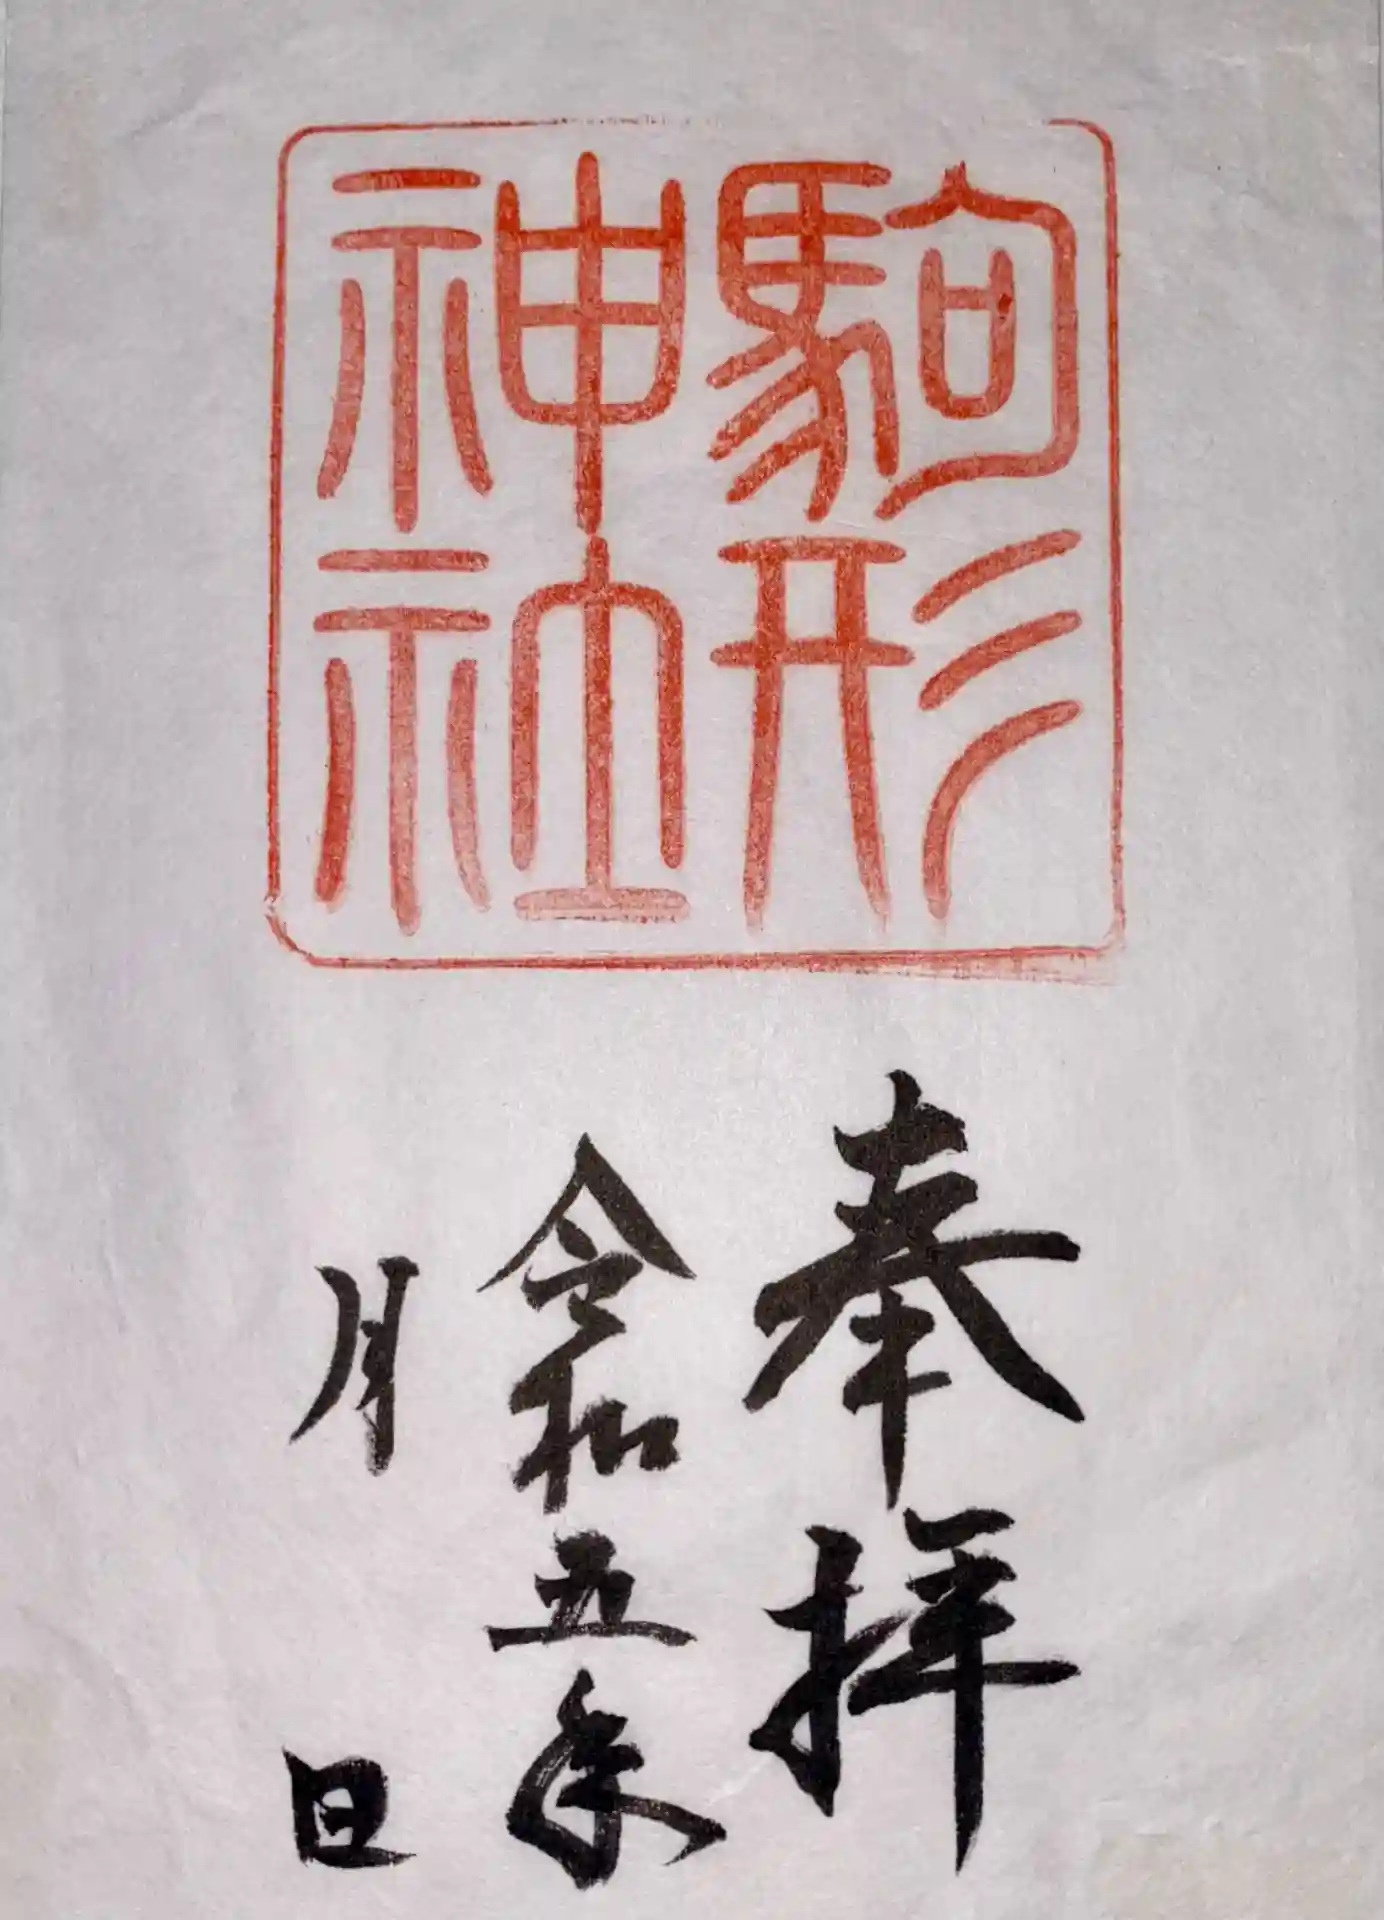 駒形
神社
奉拝
令和五年
月　日